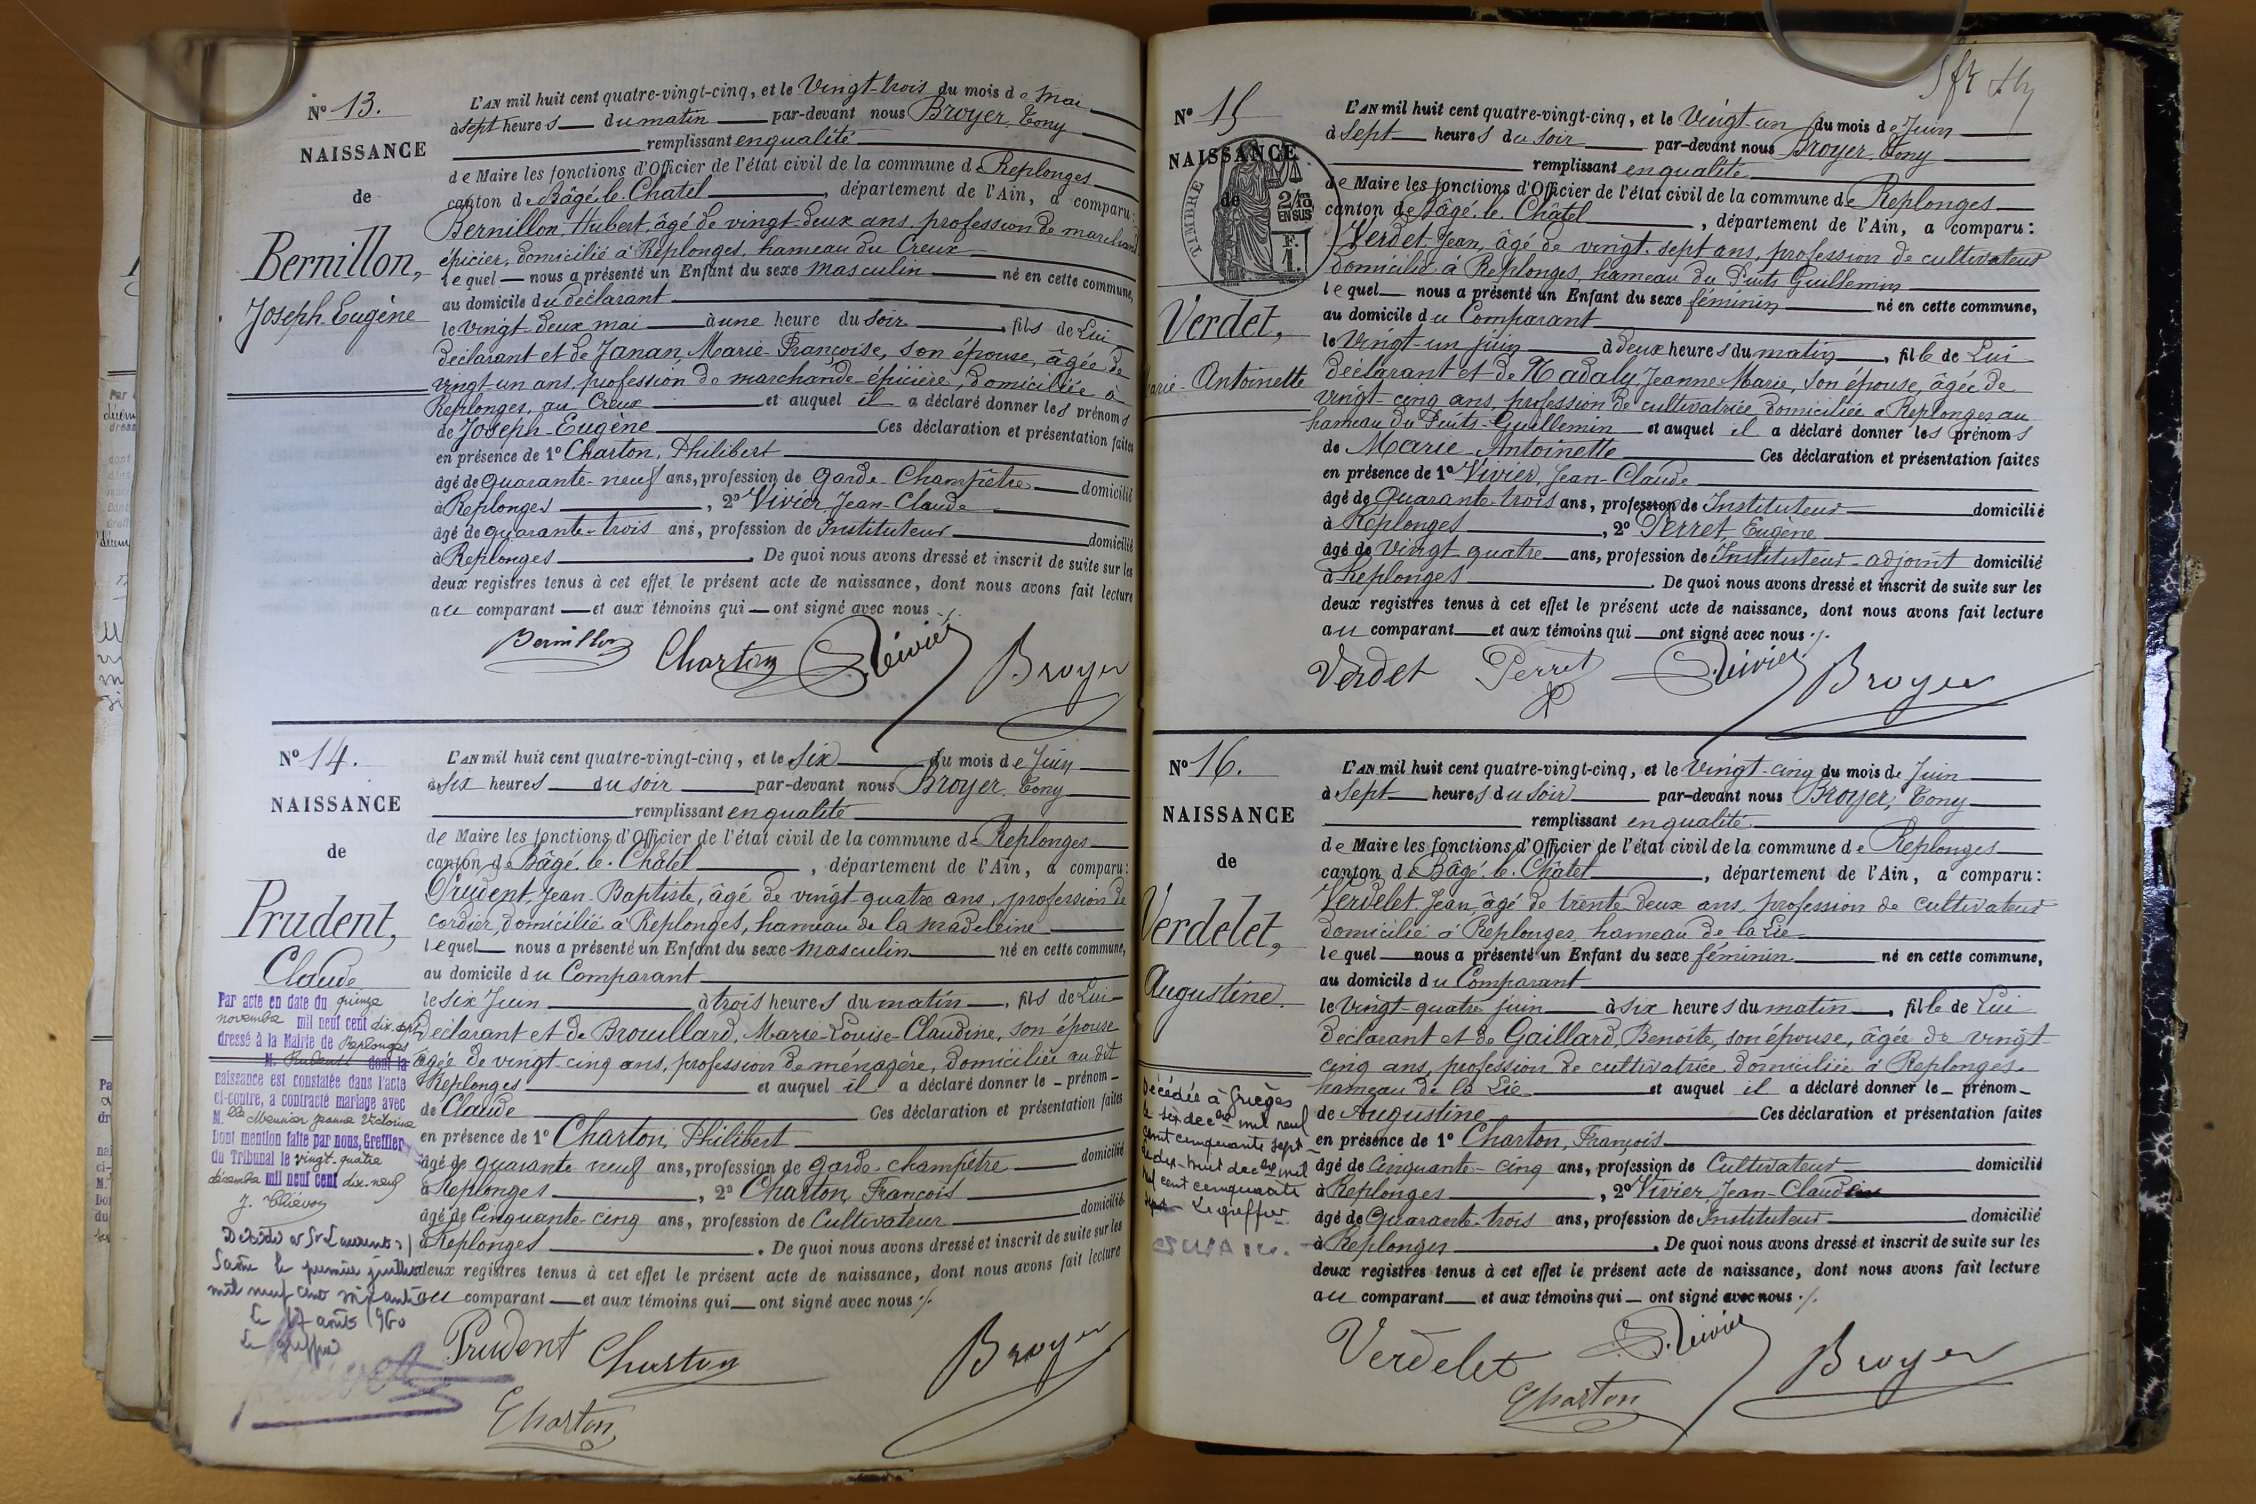 Nº 13.
NAISSANCE
de
Bernillon,
Joseph-Eugène
L'AN mil huit cent quatre-vingt-cinq, et le Vingt-trois du mois de Mai
à sept heures du matin par-devant nous Broyer, Tony
remplissant en qualité
de Maire les fonctions d'Officier de l'état civil de la commune de Replonges
canton de Bâgé-le-Châtel, département de l'Ain, a comparu:
Bernillon, Hubert, âgé de vingt-deux ans, profession de marchand
épicier, domicilié à Replonges, hameau du Creux
lequel nous a présenté un Enfant du sexe masculin né en cette commune,
au domicile du déclarant
le vingt deux mai à une heure du soir, fils de Lui
déclarant et de Janan, Marie-Françoise, son épouse, âgée de
vingt-un ans, profession de marchande épicière, domiciliée à
Replonges, au Creux et auquel il a déclaré donner les prénoms
de Joseph-Eugène Ces déclaration et présentation faites
en présence de 1º Charton, Philibert
âgé de quarante-neuf ans, profession de garde-Champêtre domicilié
à Replonges, 2º Vivier, Jean-Claude
âgé de quarante-trois ans, profession de Instituteur domicilié
à Replonges. De quoi nous avons dressé et inscrit de suite sur les
deux registres tenus à cet effet le présent acte de naissance, dont nous avons fait lecture
au comparant et aux témoins qui ont signé avec nous ./.
Bernillon Charton Vivier Broyer
Nº 14.
NAISSANCE
de
Prudent,
Claude
Par acte en date du quinze
novembre mil neuf cent dix-sept
dressé à la Mairie de Replonges
M. Prudent dont la
naissance est constatée dans l'acte
ci-contre, a contracté mariage avec
M.lle Meunier Jeanne Victorine
Dont mention faite par nous, Greffier
du Tribunal le vingt-quatre
décembre mil neuf cent dix-neuf
Décédé à St Laurent s/
Saône le premier juillet
mil neuf cent soixante
le 17 août 1960
Le greffier
L'AN mil huit cent quatre-vingt-cinq, et le six du mois de Juin
à six heures du soir par-devant nous Broyer, Tony
remplissant en qualité
de Maire les fonctions d'Officier de l'état civil de la commune de Replonges
canton de Bâgé-le-Châtel, département de l'Ain, a comparu:
Prudent, Jean-Baptiste, âgé de vingt-quatre ans, profession de
cordier, domicilié à Replonges, hameau de la Madeleine
lequel nous a présenté un Enfant du sexe masculin né en cette commune,
au domicile du Comparant
le six Juin à trois heures du matin, fils de Lui
déclarant et de Brouillard, Marie-Louise-Claudine, son épouse
âgée de vingt-cinq ans, profession de ménagère, domiciliée au dit
Replonges et auquel il a déclaré donner le prénom
de Claude Ces déclaration et présentation faites
en présence de 1º Charton, Philibert
âgé de quarante neuf ans, profession de garde-champêtre domicilié
à Replonges, 2º Charton, François
âgé de Cinquante-cinq ans, profession de Cultivateur domicilié
à Replonges. De quoi nous avons dressé et inscrit de suite sur les
deux registres tenus à cet effet le présent acte de naissance, dont nous avons fait lecture
au comparant et aux témoins qui ont signé avec nous ./.
Prudent Charton Broyer
Charton
Nº 15
NAISSANCE
de
TIMBRE
2/10
EN SUS
F.
1.
Verdet,
Marie-Antoinette
L'AN mil huit cent quatre-vingt-cinq, et le Vingt-un du mois de Juin
à Sept heures du soir par-devant nous Broyer, Tony
remplissant en qualité
de Maire les fonctions d'Officier de l'état civil de la commune de Replonges
canton de Bâgé-le-Châtel, département de l'Ain, a comparu:
Verdet, Jean, âgé de vingt-sept ans, profession de cultivateur
domicilié à Replonges, hameau du Puits Guillemin
lequel nous a présenté un Enfant du sexe féminin né en cette commune,
au domicile du Comparant
le Vingt-un juin à deux heures du matin, fille de Lui
déclarant et de Nadaly, Jeanne-Marie, son épouse, âgée de
vingt-cinq ans, profession de cultivatrice, domiciliée à Replonges au
hameau du Puits-Guillemin et auquel il a déclaré donner les prénoms
de Marie-Antoinette Ces déclaration et présentation faites
en présence de 1º Vivier, Jean-Claude
âgé de Quarante-trois ans, profession de Instituteur domicilié
à Replonges, 2º Perret, Eugène
âgé de Vingt quatre ans, profession de Instituteur-adjoint domicilié
à Replonges. De quoi nous avons dressé et inscrit de suite sur les
deux registres tenus à cet effet le présent acte de naissance, dont nous avons fait lecture
au comparant et aux témoins qui ont signé avec nous ./.
Verdet Perret Vivier Broyer
Nº 16.
NAISSANCE
de
Verdelet,
Augustine.
Décédée à Grièges
le six dec.bre mil neuf
cent cinquante sept
Le dix-huit dec.bre mil
neuf cent cinquante
sept Le greffier
L'AN mil huit cent quatre-vingt-cinq, et le Vingt-cinq du mois de Juin
à Sept heures du Soir par-devant nous Broyer, Tony
remplissant en qualité
de Maire les fonctions d'Officier de l'état civil de la commune de Replonges
canton de Bâgé-le-Châtel, département de l'Ain, a comparu:
Verdelet, Jean, âgé de trente-deux ans, profession de cultivateur
domicilié à Replonges, hameau de la Lie
lequel nous a présenté un Enfant du sexe féminin né en cette commune,
au domicile du Comparant
le Vingt-quatre juin à six heures du matin, fille de Lui
déclarant et de Gaillard, Benoite, son épouse, âgée de vingt-
cinq ans, profession de cultivatrice, domiciliée à Replonges
hameau de la Lie et auquel il a déclaré donner le prénom
de Augustine Ces déclaration et présentation faites
en présence de 1º Charton, François
âgé de Cinquante-cinq ans, profession de Cultivateur domicilié
à Replonges, 2º Vivier, Jean-Claude
âgé de Quarante-trois ans, profession de Instituteur domicilié
à Replonges. De quoi nous avons dressé et inscrit de suite sur les
deux registres tenus à cet effet le présent acte de naissance, dont nous avons fait lecture
au comparant et aux témoins qui ont signé avec nous ./.
Verdelet Vivier Broyer
Charton